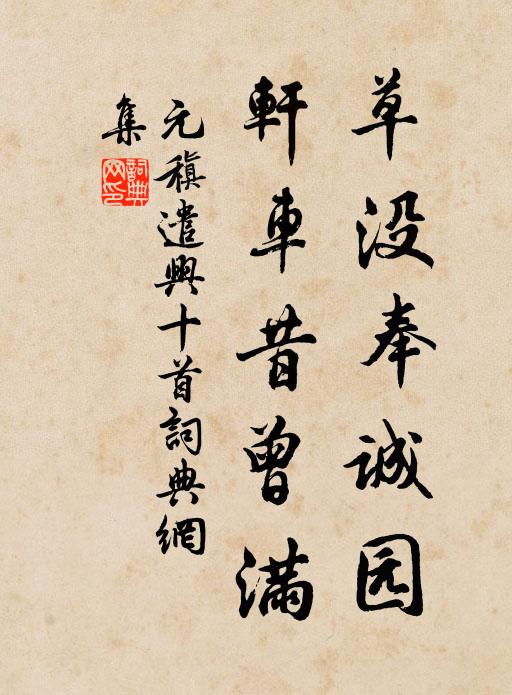 草没奉诚园
軒車昔曾滿
元稹遣興十首詞典網
集
詞典網印